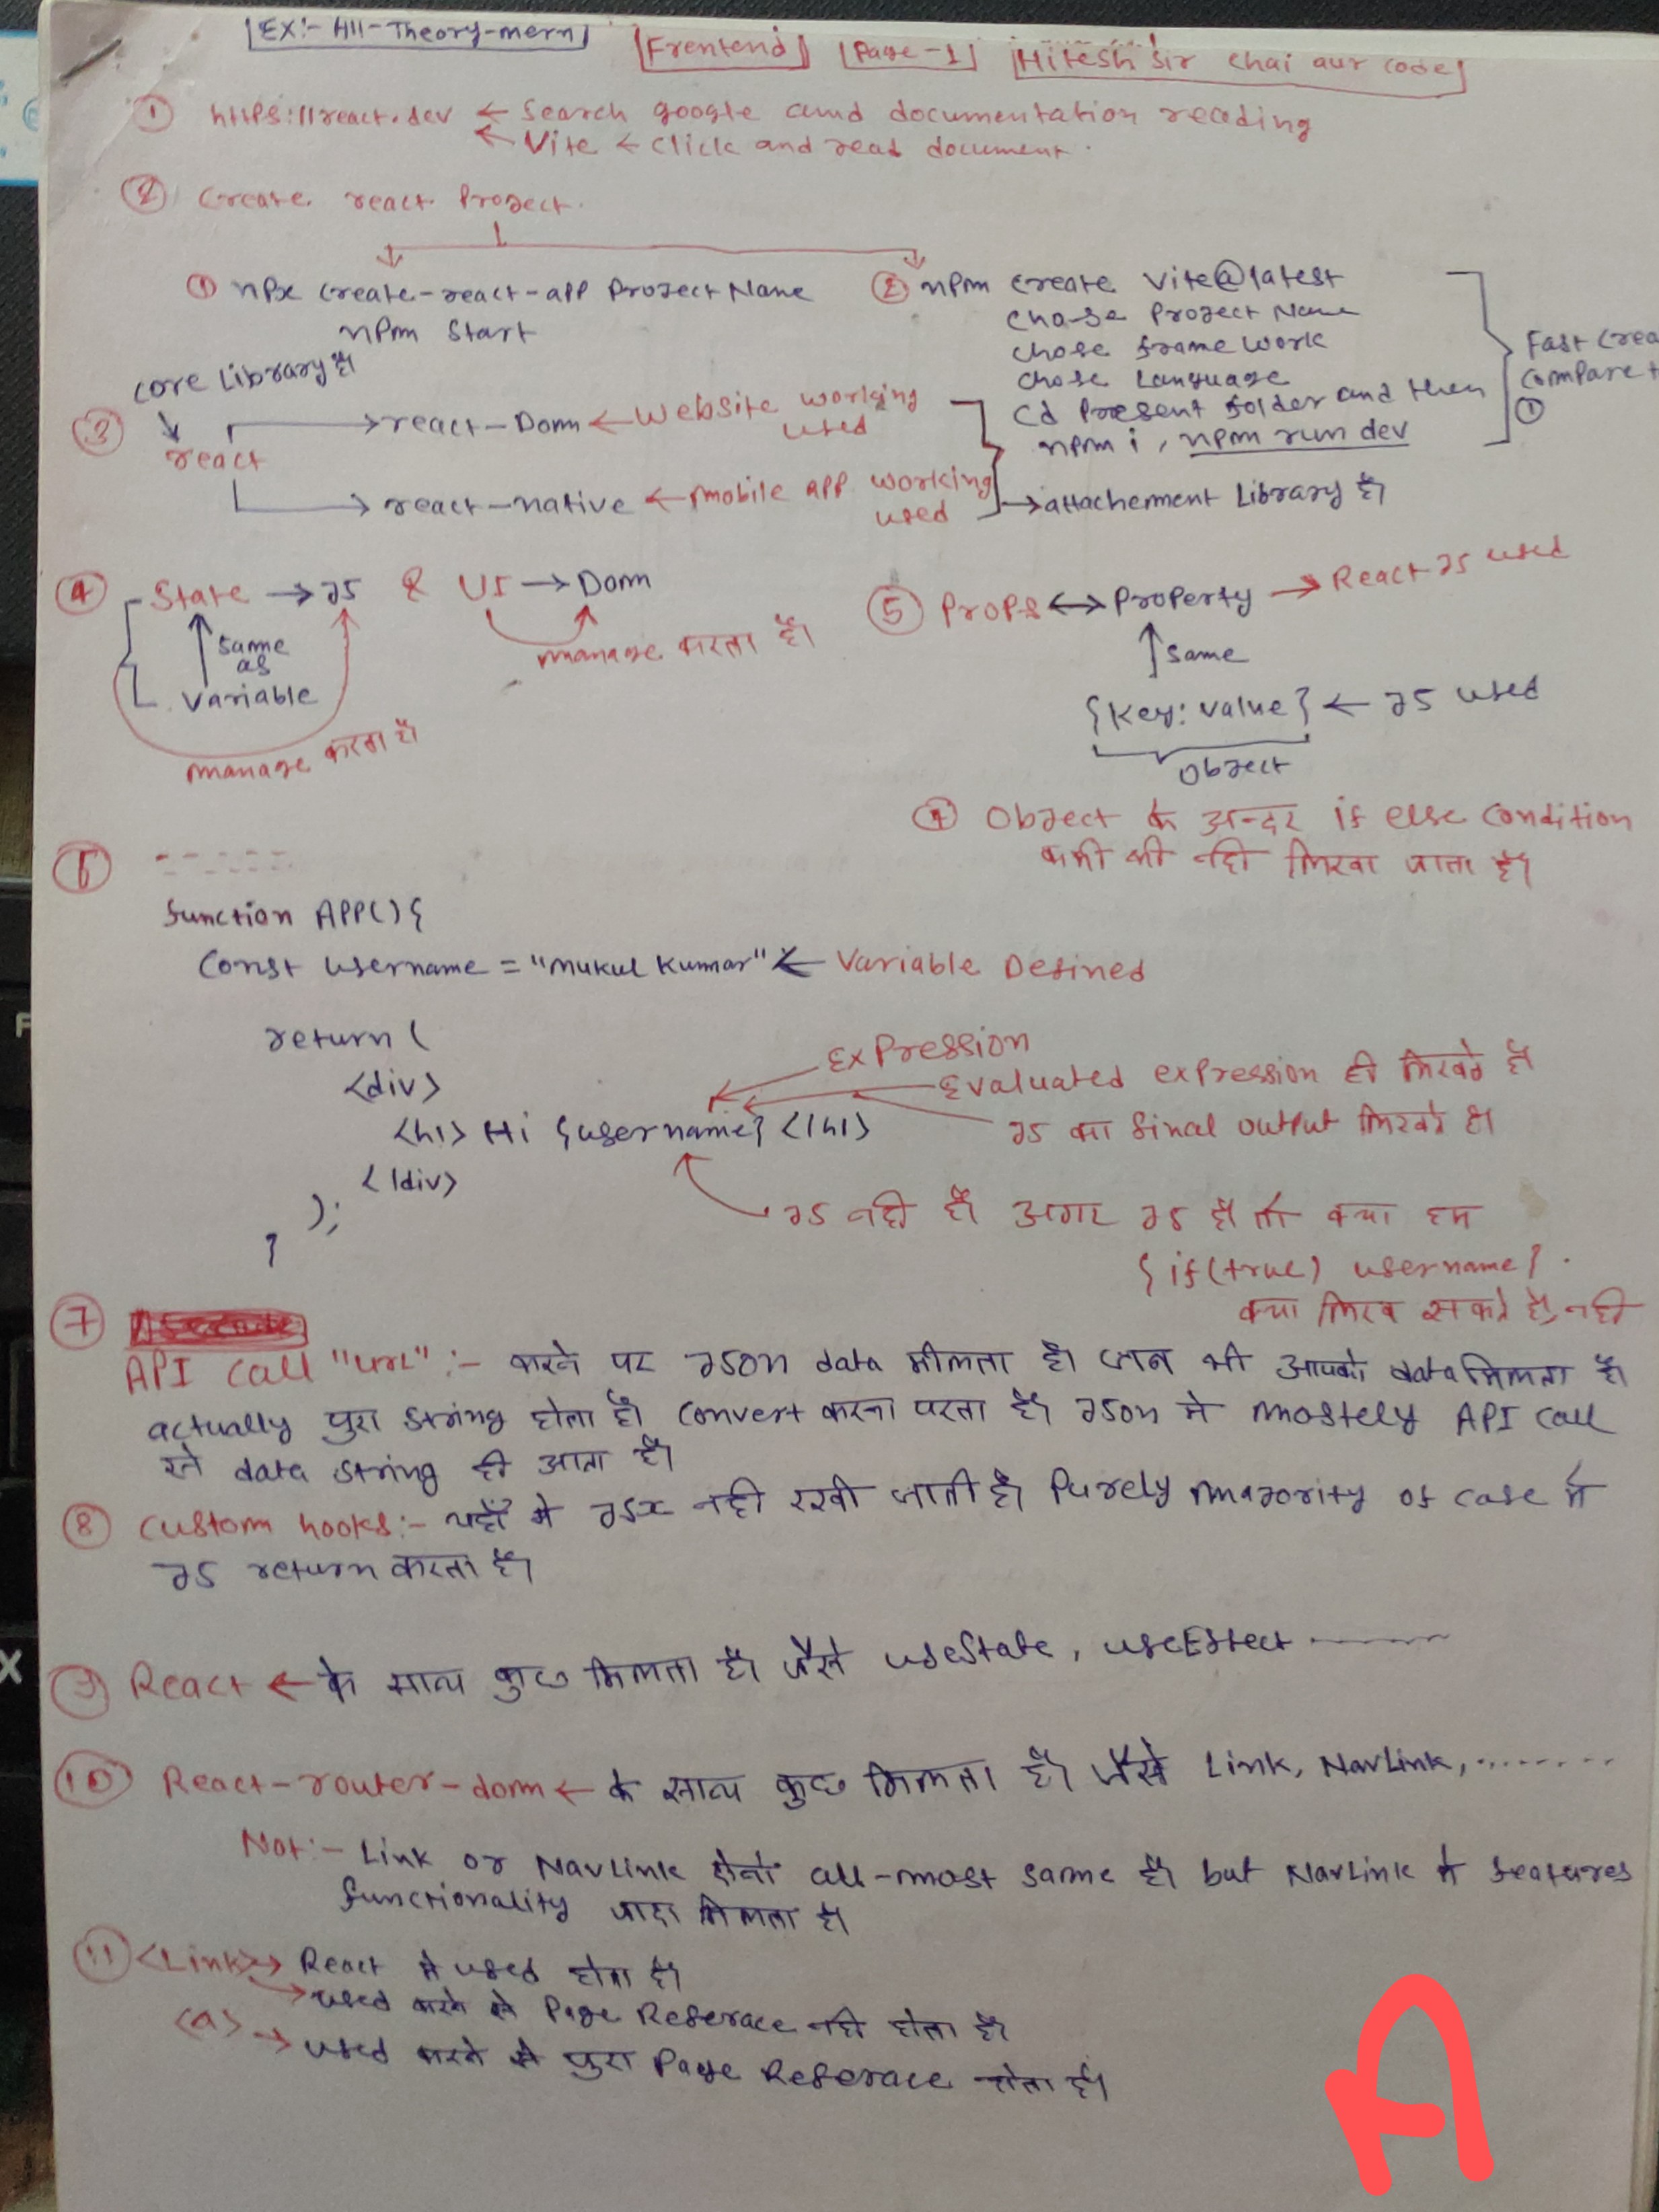 EX:- All-Theory-mern
Frentend Page-1 Hitesh sir chai aur code
① https://react.dev ← Search google and documentation reading
← Vite ← click and read document.
② Create react Project.
① npx create-react-app ProjectName
npm Start
② npm create vite@latest
chose Project Name
chose frame work
chose Language
cd Present folder and then
npm i, npm run dev
Fast Crea
compare t
①
core Library है।
③ react
→ react-Dom ← Website working
used
→ react-native ← mobile app working
used
→ attachement Library है।
④ State → JS & UI → Dom
same
as
variable
manage करता है।
manage करता है।
⑤ Props ↔ Property → React JS used
same
{Key: value} ← JS used
Object
④ Object के अन्दर if else condition
कभी भी नही लिखा जाता है।
⑥
function APP(){
Const username = "Mukul Kumar" ← Variable Defined
return (
<div>
<h1> Hi {username} </h1>
</div>
);
}
Expression
Evaluated expression ही लिखते है।
JS का final output लिखते है।
JS नही है। अगर JS है तो क्या हम
{if(true) username}.
क्या लिख सकते है, नही
⑦
API call "url":- करने पर JSON data मीलता है। जब भी आपको data मिलता है।
actually पुरा string होता है। convert करना परता है। JSON मे mostely API call
से data string ही आता है।
⑧ custom hooks:- यहाँ मे JSX नही रखी जाती है। Purely majority of case में
JS return करता है।
⑨ React ← के साथ कुछ मिलता है। जैसे useState, useEffect
⑩ React-router-dom ← के साथ कुछ मिलता है। जैसे Link, NavLink, ........
Not:- Link or NavLink दोनो all-most same है। but NavLink में features
functionality जादा मिलता है।
⑪ <Link> → React मे used होता है।
→ used करने से Page Referace नही होता है।
<a> → used करने से पुरा Page Referace होता है।
A